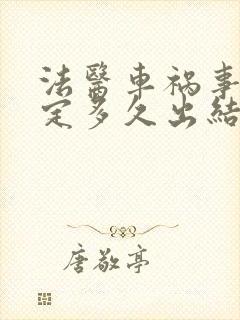 法醫車禍事
定多久出結
唐敬亭